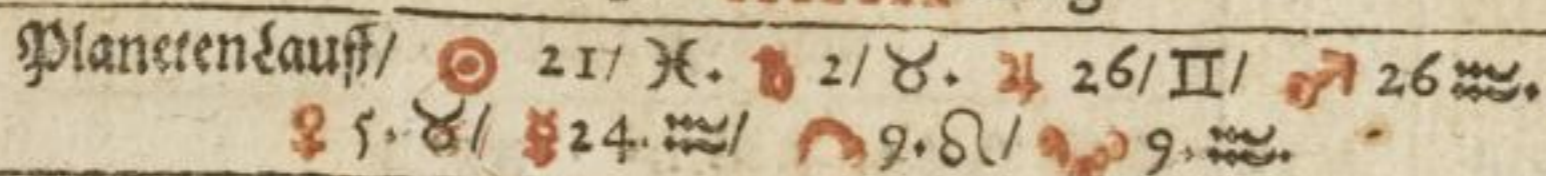 Planeten Lauff/ ☉ 21/ ♓. ♄ 2/ ♉. ♃ 26/ ♊/ ♂ 26 ♒.
♀ 5. ♉/ ☿ 24. ♒/ ☊ 9. ♌/ ☋ 9. ♒.